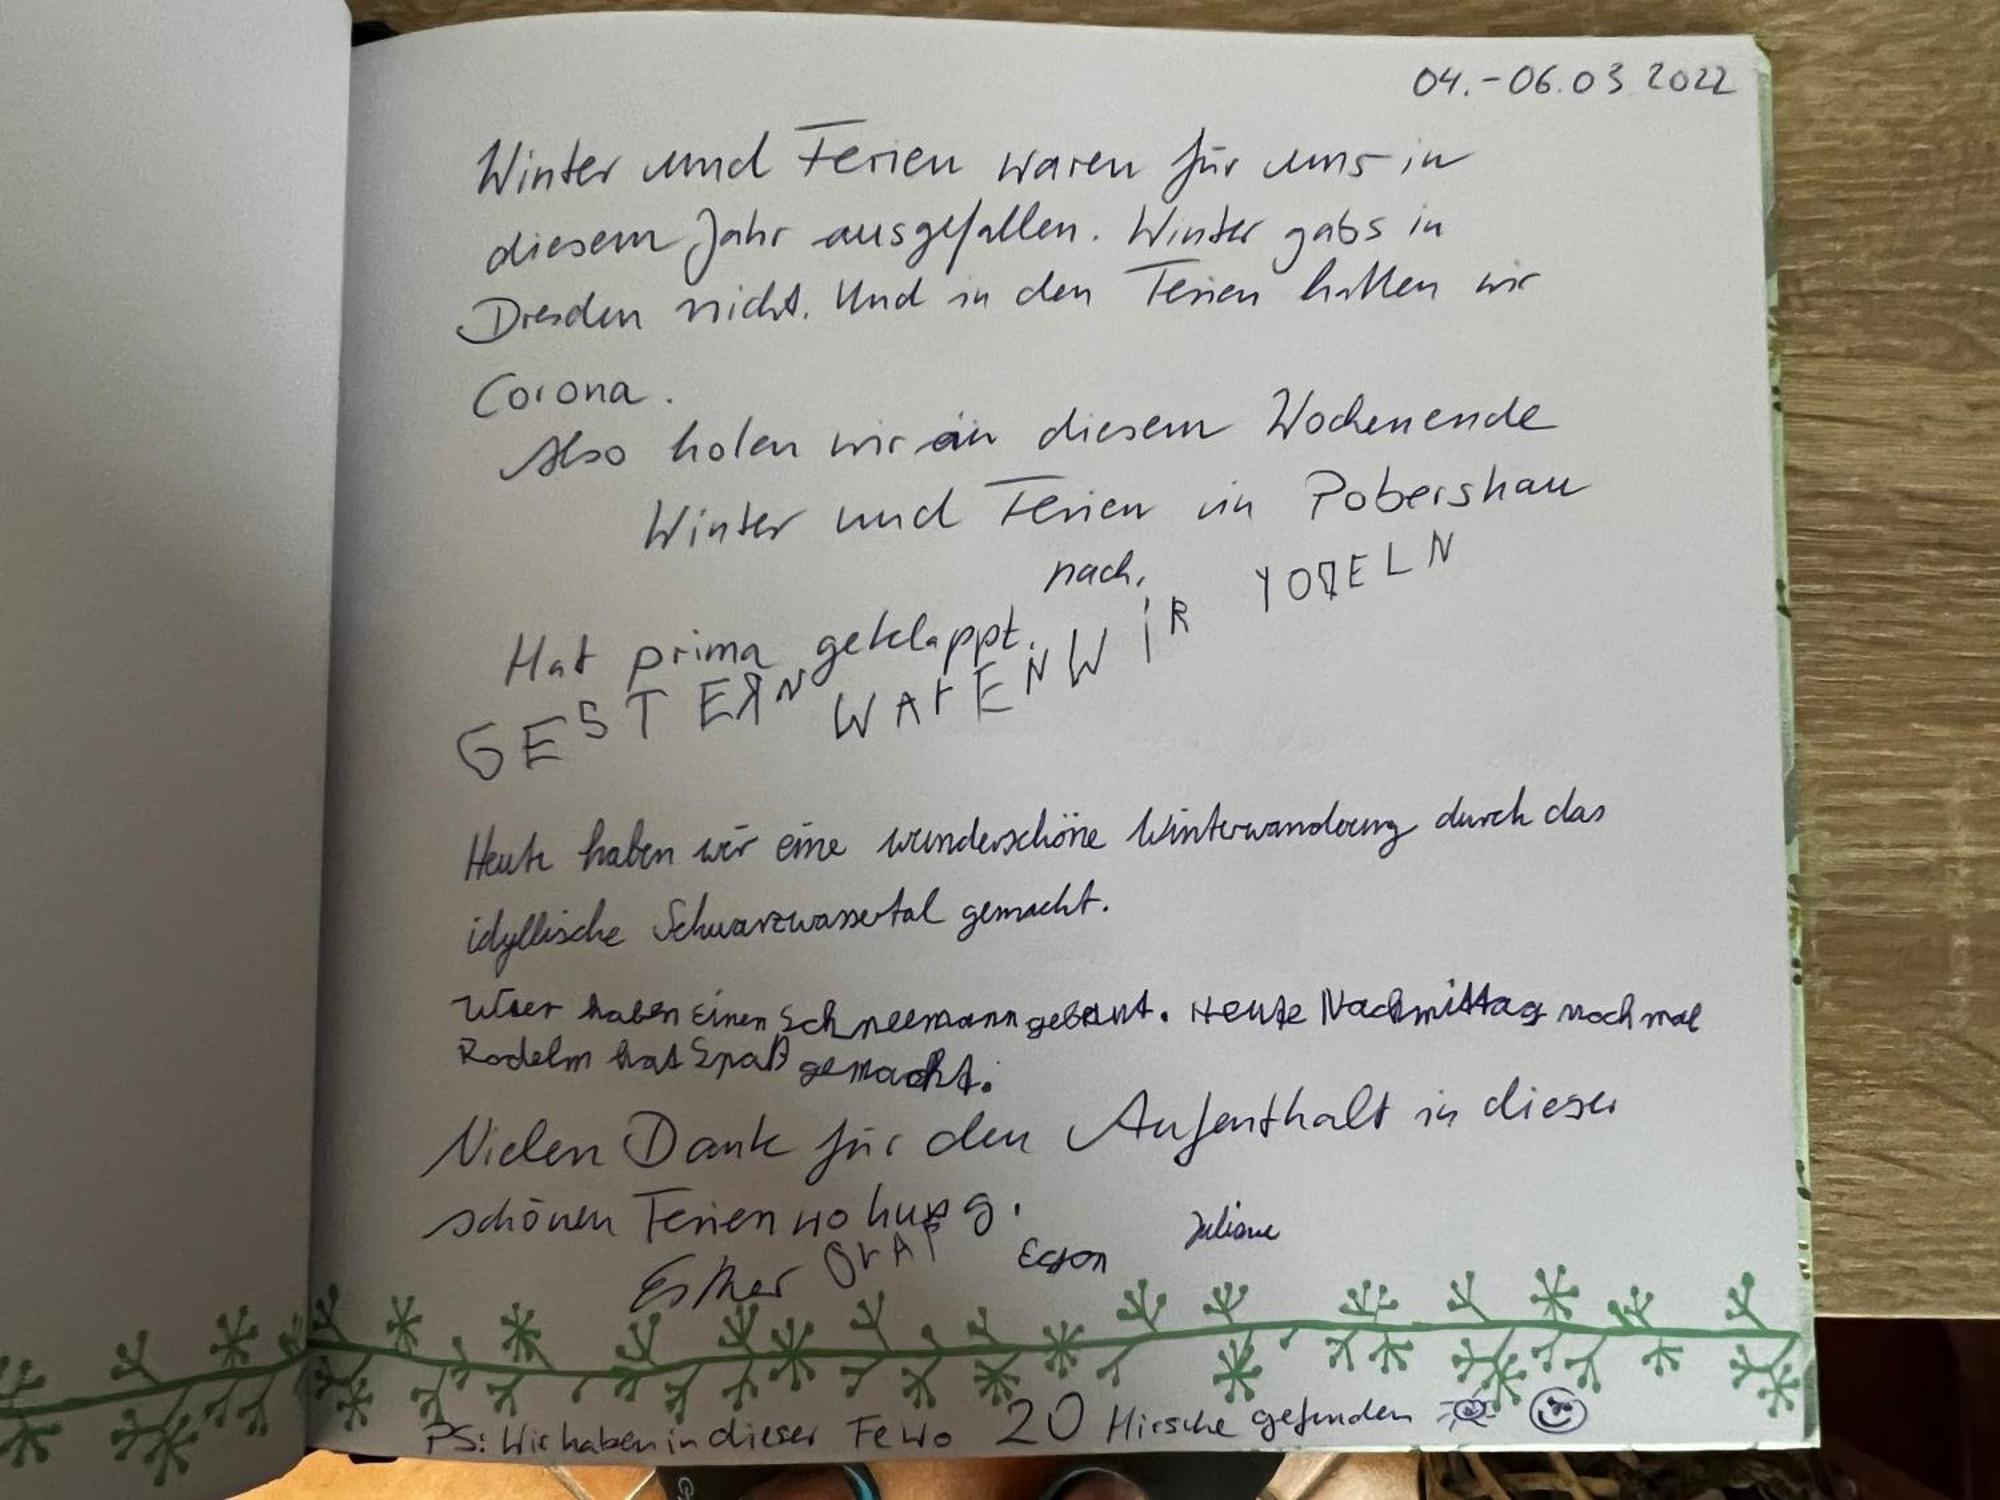 04.-06.03 2022
Winter und Ferien waren für uns in
diesem Jahr ausgefallen. Winter gabs in
Dresden nicht. Und in den Ferien hatten wir
Corona.
Also holen wir an diesem Wochenende
Winter und Ferien in Pobershau
nach.
Hat prima geklappt.
GESTERN WAREN WIR YODELN
Heute haben wir eine wunderschöne Winterwanderung durch das
idyllische Schwarzwassertal gemacht.
Wier haben Einen Schneemann gebaut. Heute Nachmittag noch mal
Rodeln hat Spaß gemacht.
Vielen Dank für den Aufenthalt in dieser
schönen Ferienwohung.
Esther OLAF Egon Juliane
PS: Wir haben in dieser FeWo 20 Hirsche gefunden